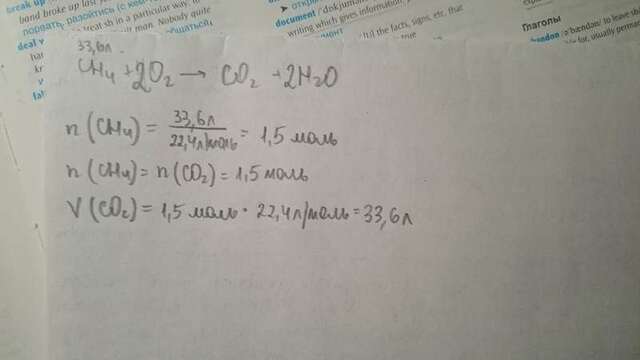 break up
band broke up last ye
порвать, разойтись (с кем-то
treat sth in a particular way
man. Nobody quite
deal
document / 'dɒkjum
writing which gives information,
the facts, signs, etc. that
true
Глаголы
/ə'bændən/ to leave
for, usually perman
33,6л.
CH4 + 2O2 → CO2 + 2H2O
n (CH4) = 33,6л / 22,4л/моль = 1,5 моль
n (CH4) = n (CO2) = 1,5 моль
V (CO2) = 1,5 моль · 22,4л/моль = 33,6л